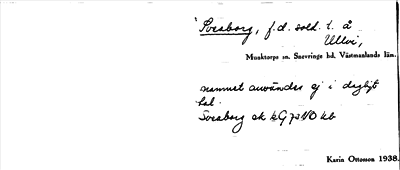 Sveaborg, f.d. sold. t. å
Ullvi,
Munktorps sn. Snevringe hd. Västmanlands län.
namnet användes ej i dagligt
tal.
Sveaborg ek
Karin Ottosson 1938.